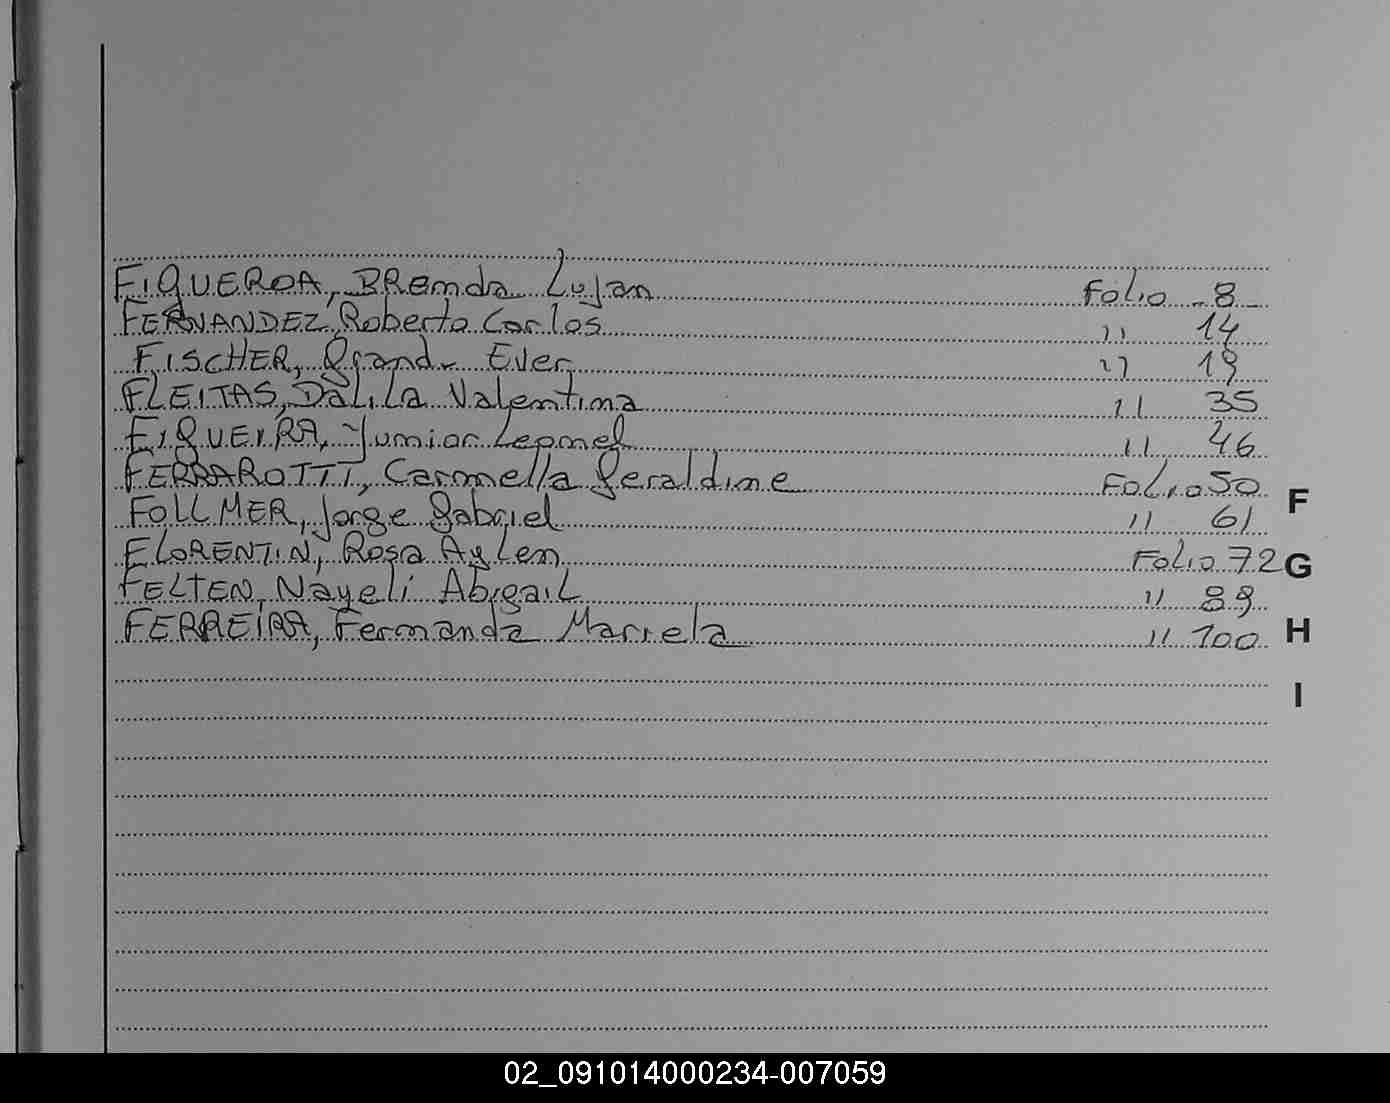 FIGUEROA, BRenda Lujan Folio 8
FERNANDEZ, Roberto Carlos " 14
FISCHER, Ever " 19
FLEITAS, DaLiLa Valentina " 35
FIGUEIRA, Junior Leonnel " 46
FERRAROTTI, Carmella Geraldine Folio 50
FOLLMER, Jorge Gabriel " 61
FLORENTIN, Rosa Aylen Folio 72
FELTEN, Nayeli AbigaiL " 89
FERREIRA, Fernanda Mariela " 100
F
G
H
I
02_091014000234-007059